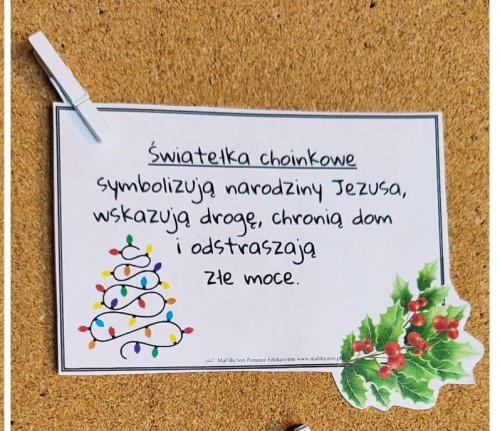 Światełka choinkowe
symbolizują narodziny Jezusa,
wskazują drogę, chronią dom
i odstraszają
złe moce.
Pomoce Edukacyjne